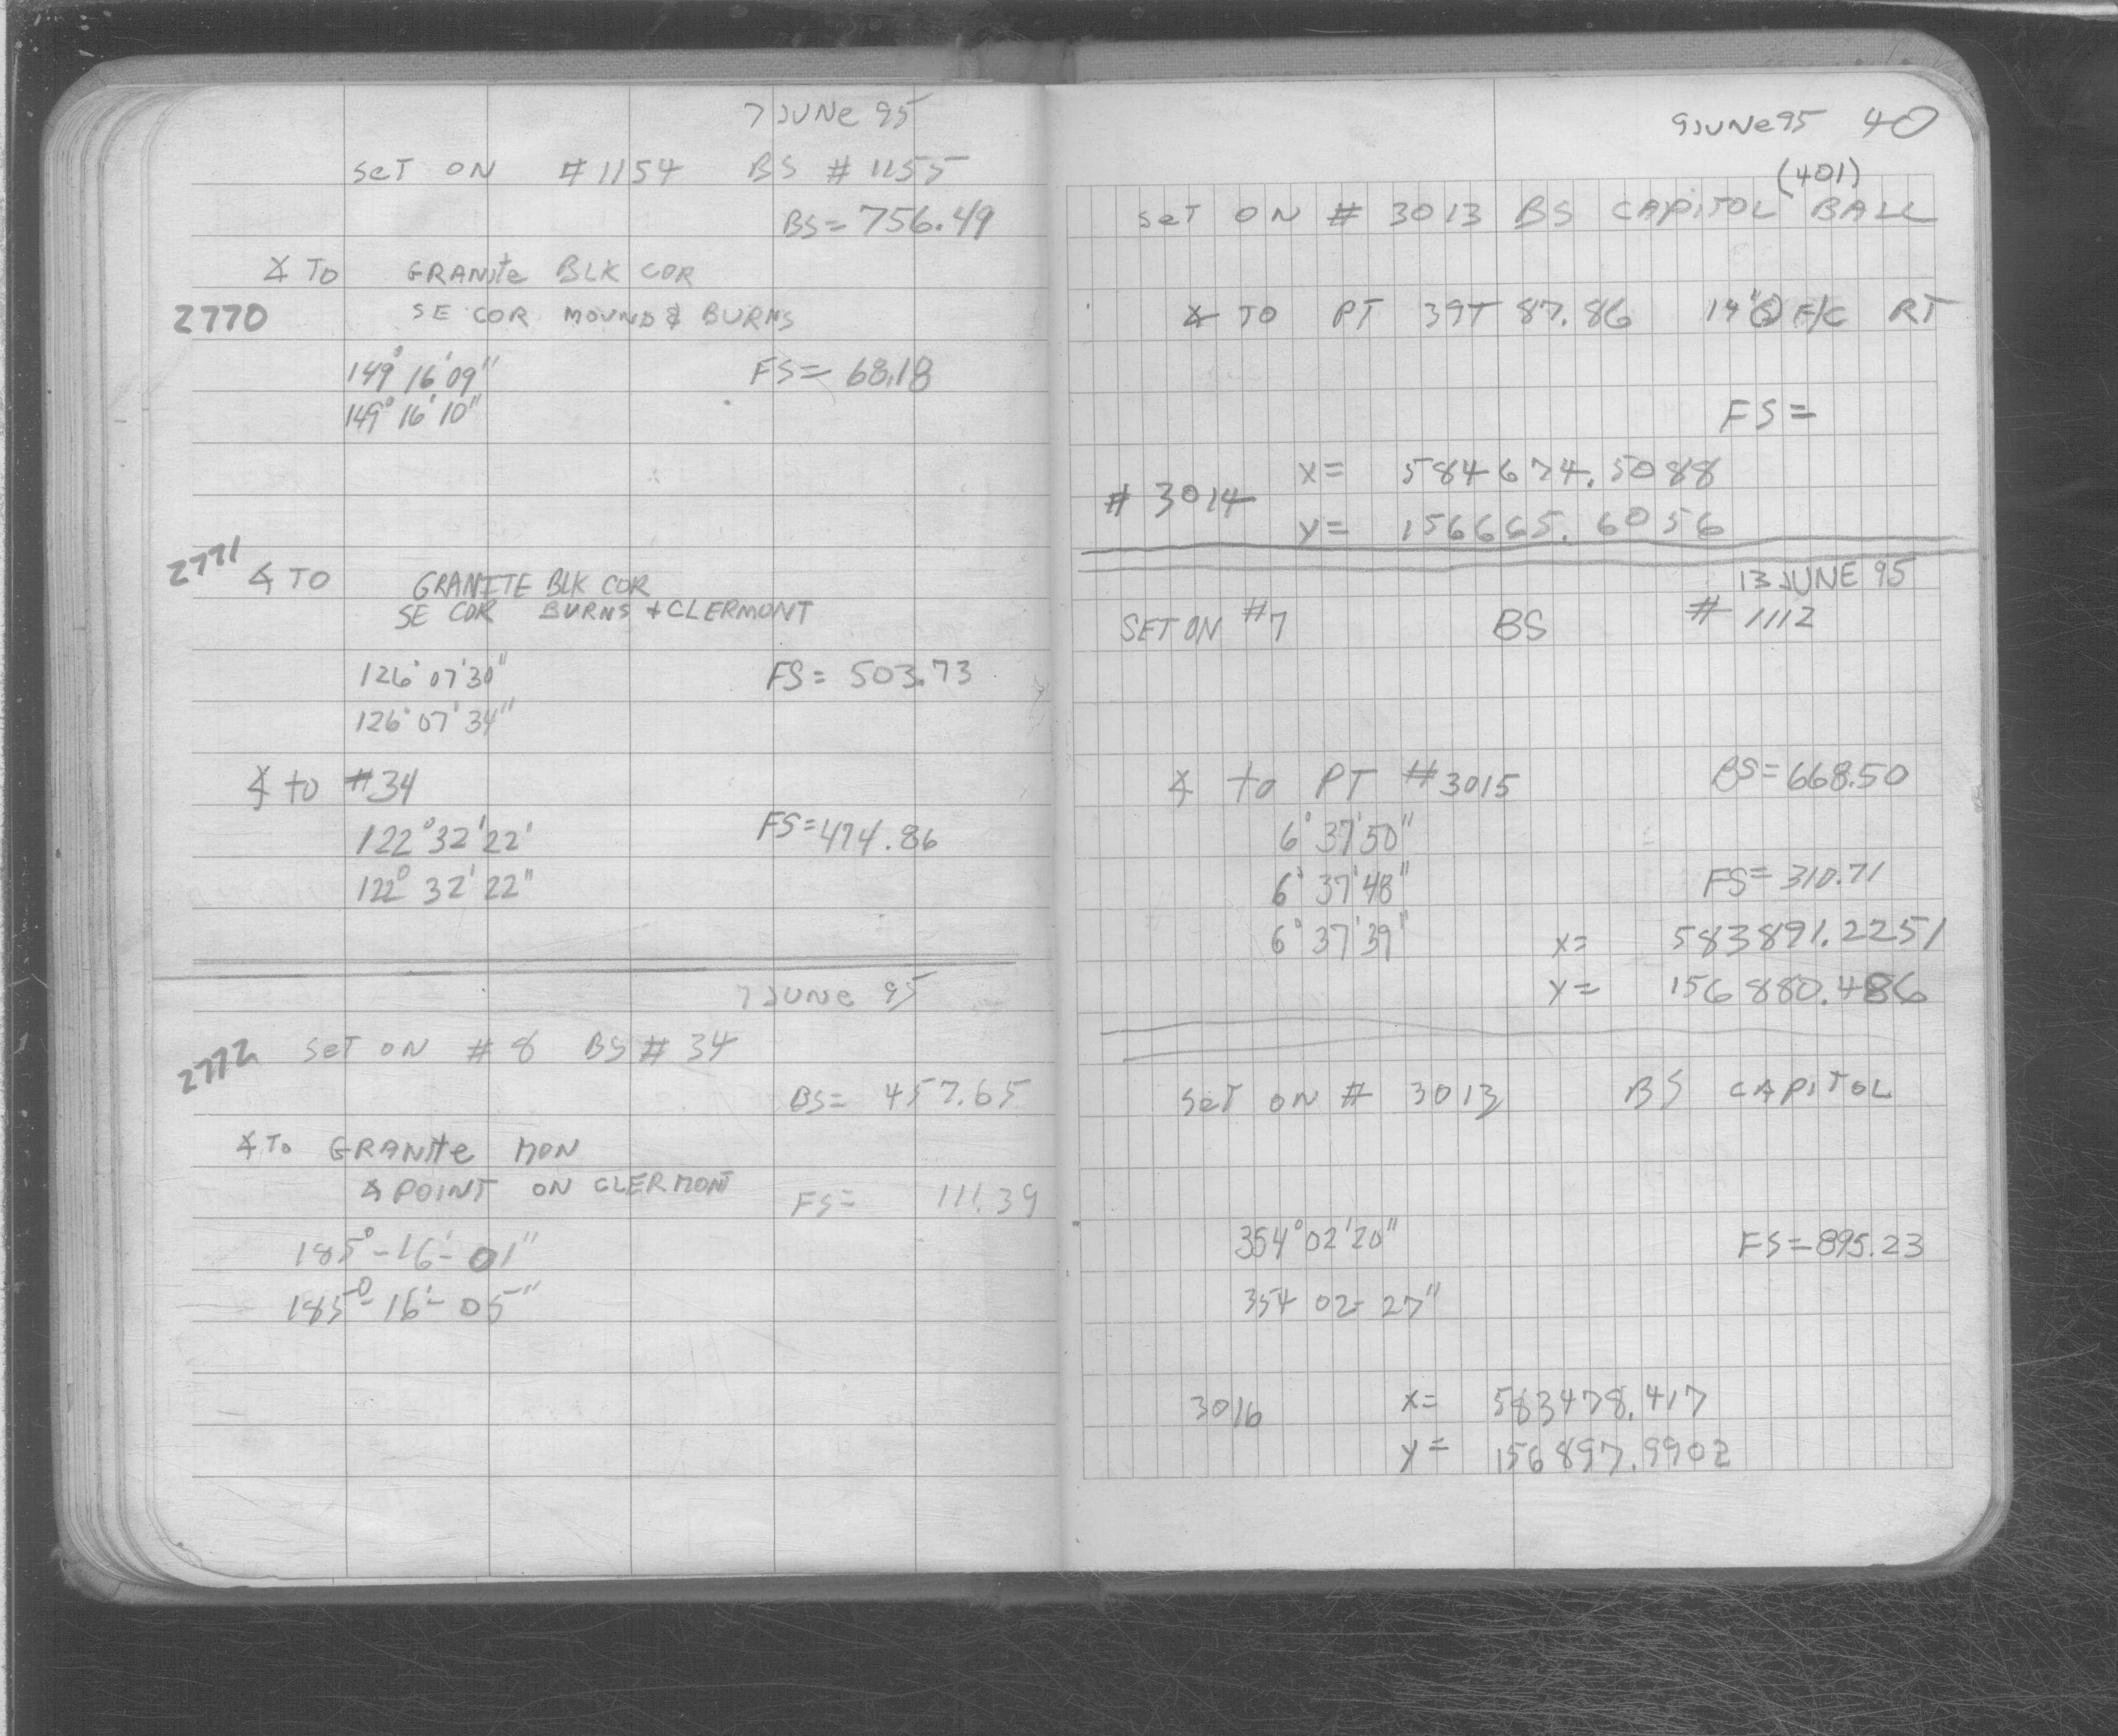 7 JUNE 95
SET ON #1154 BS #1155
BS= 756.49
∡ TO GRANITE BLK COR
2770 SE COR MOUND & BURNS
149° 16' 09" FS= 68.18
149° 16' 10"
2771 ∡ TO GRANITE BLK COR
SE COR BURNS + CLERMONT
126° 07' 30" FS= 503.73
126° 07' 34"
∡ to #34
122° 32' 22' FS= 474.86
122° 32' 22"
7 JUNE 95
2772 SET ON #8 BS #34
BS= 457.65
∡ TO GRANITE MON
∡ POINT ON CLERMONT FS= 111.39
185°-16'-01"
185°-16'-05"
9 JUNE 95 40
(401)
SET ON # 3013 BS CAPITOL BALL
∡ TO PT 39+ 87.86 F/C RT
FS=
# 3014 X= 584674.5088
Y= 156665.6056
13 JUNE 95
SET ON #7 BS # 1112
∡ to PT #3015 BS= 668.50
6° 37' 50"
6° 37' 48" FS= 310.71
6° 37' 39" X= 583891.2251
Y= 156880.486
SET ON # 3013 BS CAPITOL
354° 02' 20" FS= 895.23
354 02- 27"
3016 X= 583478.417
Y= 156897.9902